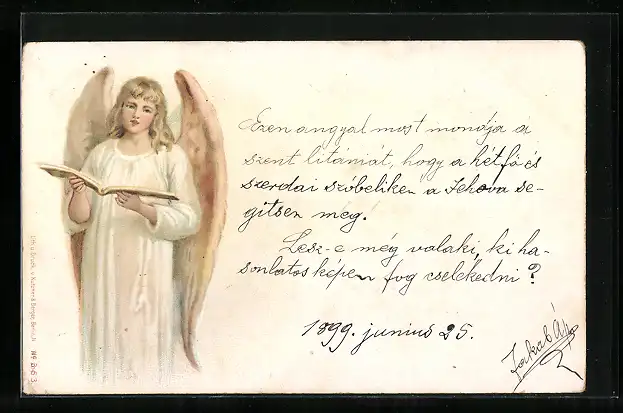 Ezen angyal most mondja a
szent litániát, hogy a hétfő és
szerdai szóbeliken a Jehova se-
gitsen meg.
Lesz-e még valaki, ki ha-
sonlatosképen fog cselekedni?
1899. junius 25.
Jakab Áp
Nº B 63.